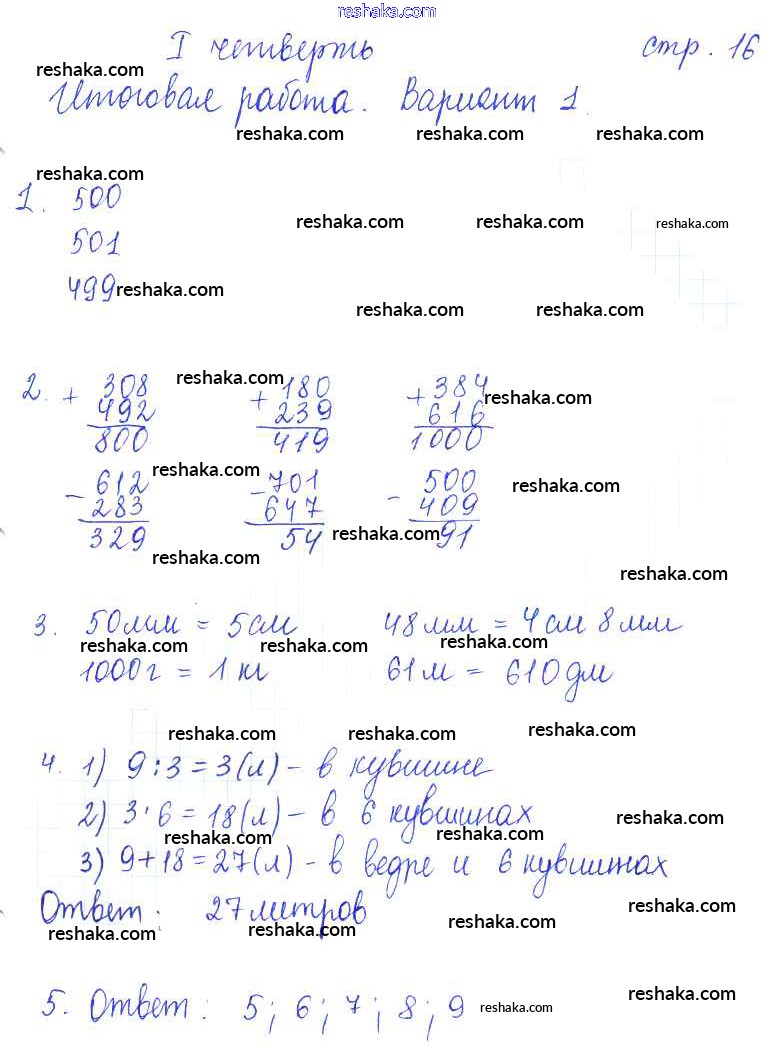 reshaka.com
I четверть стр. 16
reshaka.com
Итоговая работа. Вариант 1.
reshaka.com reshaka.com reshaka.com
reshaka.com
1. 500
reshaka.com reshaka.com reshaka.com
501
499 reshaka.com
reshaka.com reshaka.com
reshaka.com
2. + 308 + 180 + 384
reshaka.com
492 239 616
800 419 1000
reshaka.com
- 612 - 701 - 500
reshaka.com
283 647 409
329 54 91
reshaka.com
reshaka.com
reshaka.com
3. 50мм = 5см 48мм = 4см 8мм
reshaka.com reshaka.com reshaka.com
1000г = 1кг 61м = 610дм
reshaka.com reshaka.com reshaka.com
4. 1) 9:3=3(л) - в кувшине
2) 3·6=18(л) - в 6 кувшинах
reshaka.com
reshaka.com reshaka.com
3) 9+18=27(л) - в ведре и 6 кувшинах
Ответ: 27 литров
reshaka.com
reshaka.com reshaka.com reshaka.com
5. Ответ: 5; 6; 7; 8; 9
reshaka.com reshaka.com